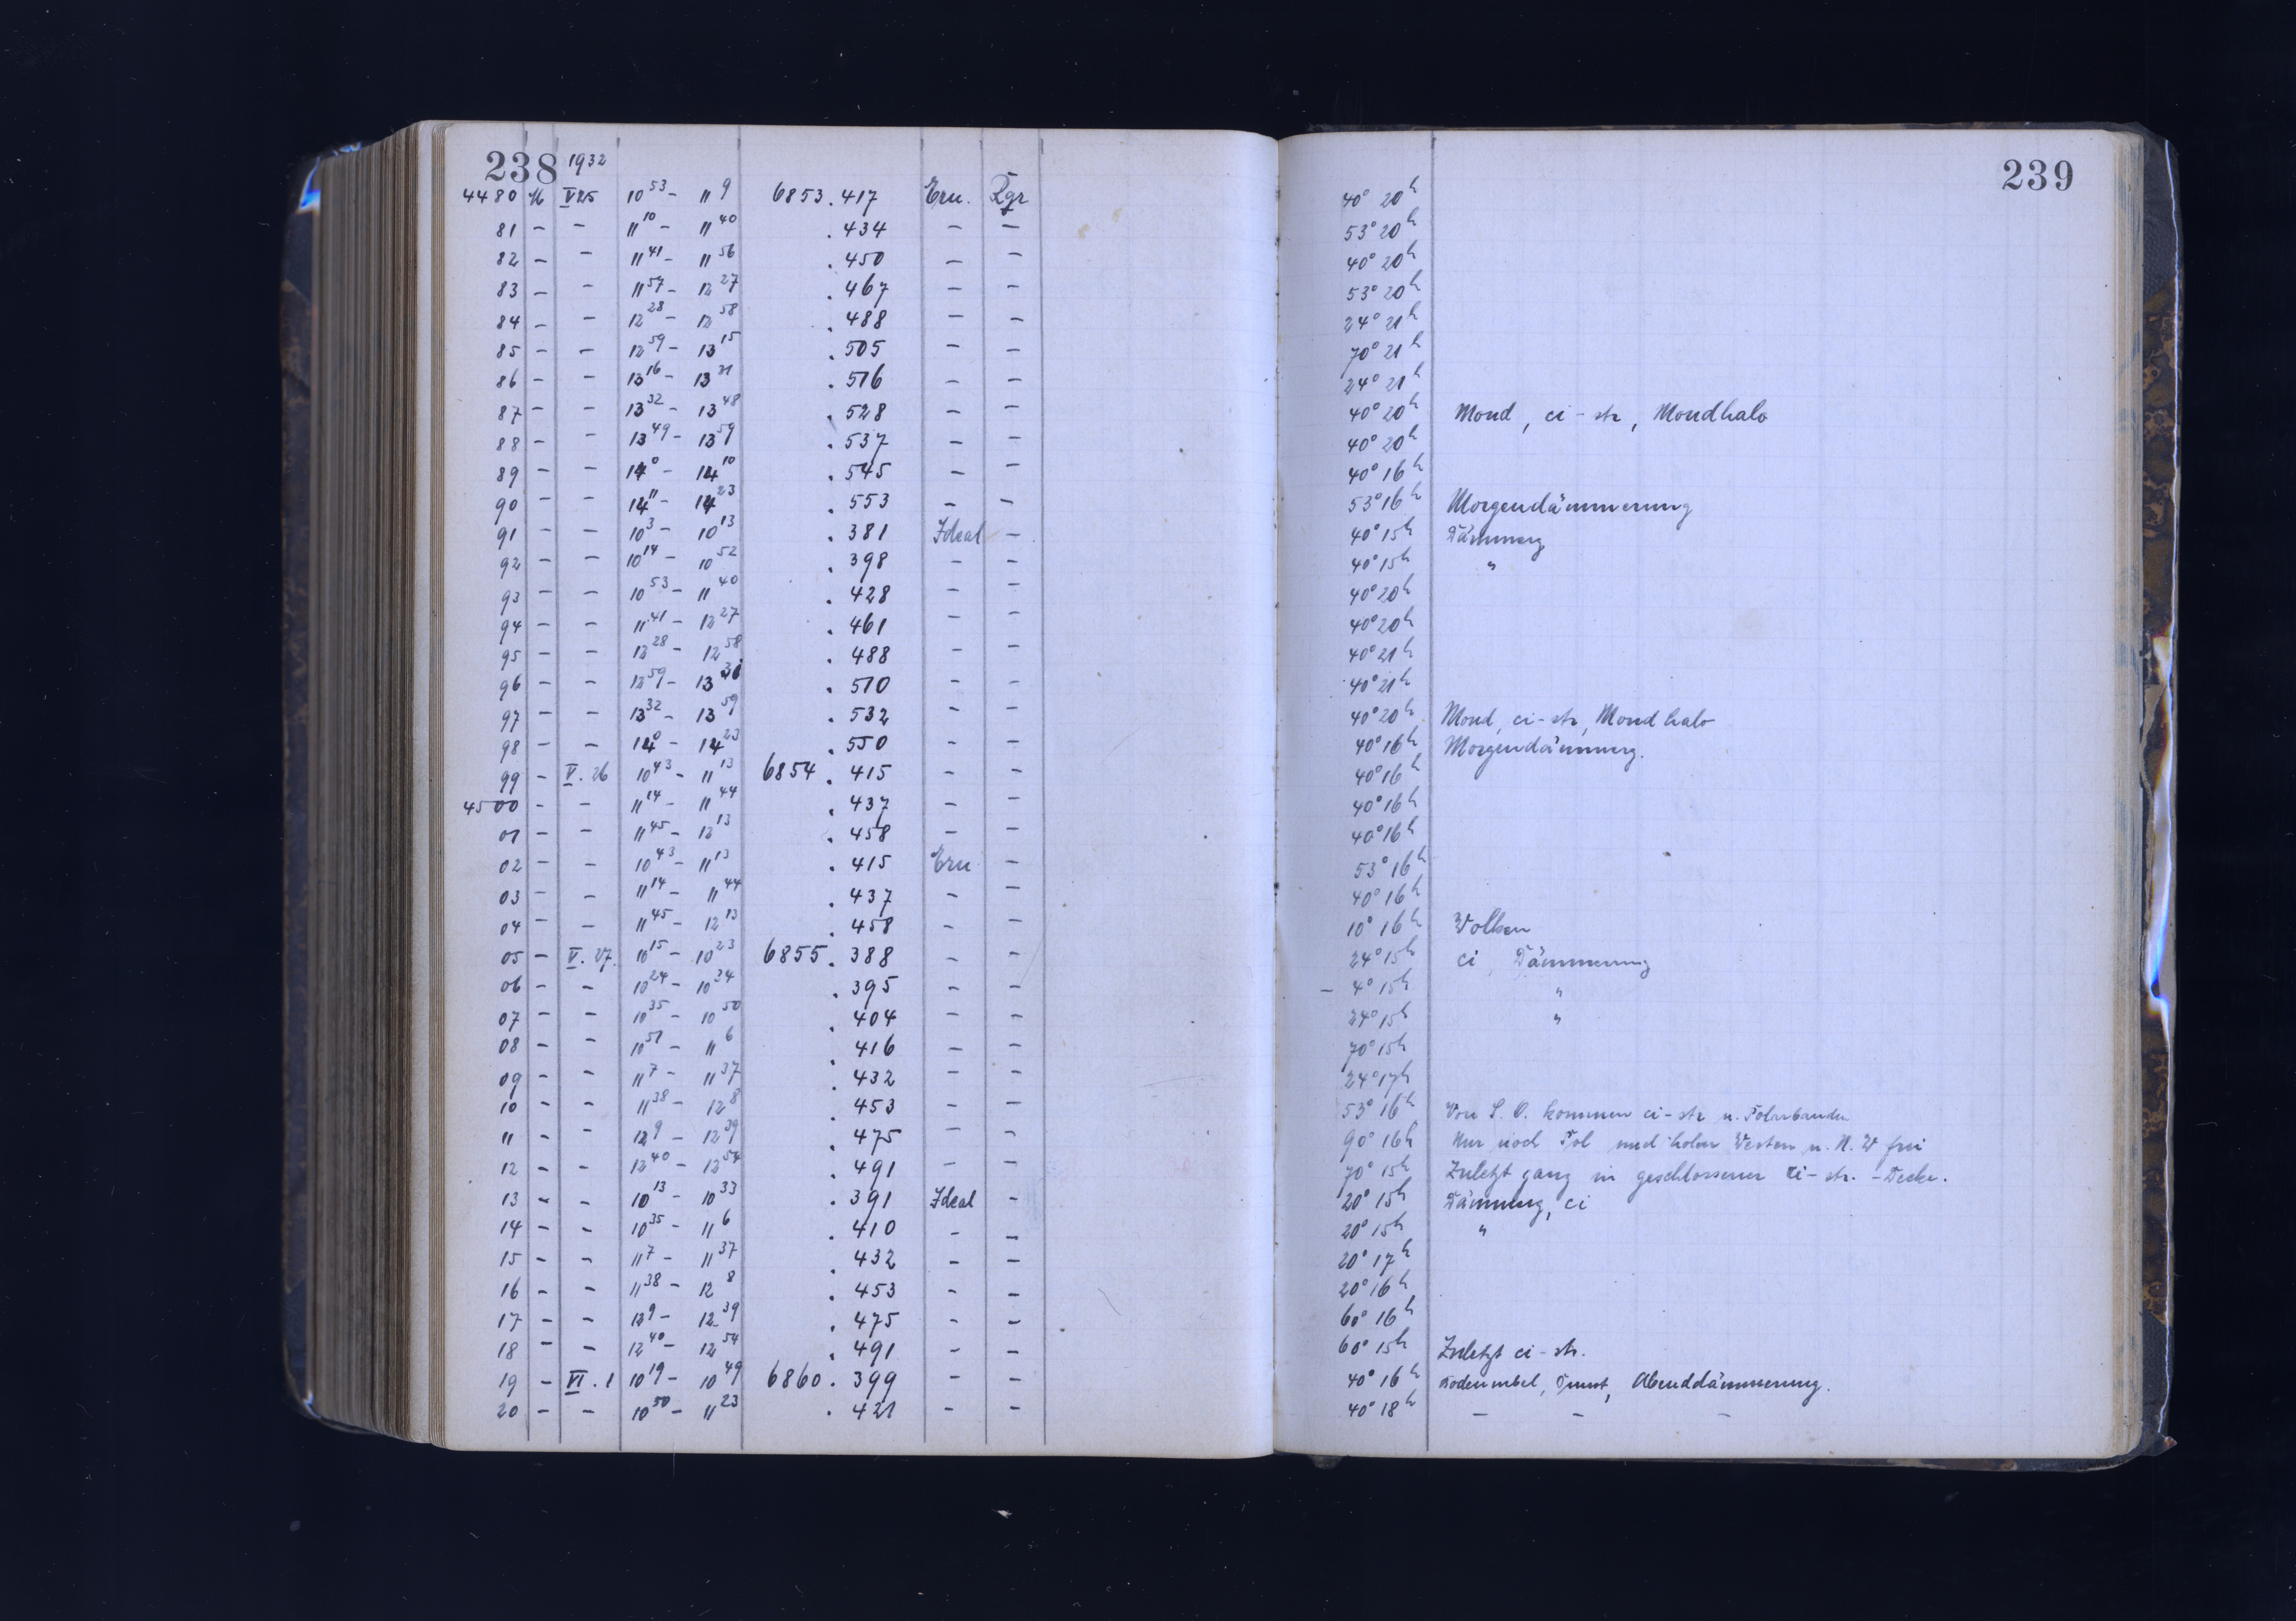 238 1932 239
4480 V 25 10 53 - 11 9 6853.417 Ern. 40° 20h
81 - - 11 10 - 11 40 .434 - - 53° 20h
82 - - 11 41 - 11 56 .450 - - 40° 20h
83 - - 11 57 - 12 27 .467 - - 53° 20h
84 - - 12 28 - 12 58 .488 - - 24° 21h
85 - - 12 59 - 13 15 .505 - - 70° 21h
86 - - 13 16 - 13 31 .516 - - 24° 21h
87 - - 13 32 - 13 48 .528 - - 40° 20h Mond, ci-str, Mondhalo
88 - - 13 49 - 13 59 .537 - - 40° 20h
89 - - 14 0 - 14 10 .545 - - 40° 16h
90 - - 14 11 - 14 23 .553 - - 53° 16h Morgendämmerung
91 - - 10 3 - 10 13 .381 Ideal - 40° 15h Dämmerg
92 - - 10 14 - 10 52 .398 - - 40° 15h "
93 - - 10 53 - 11 40 .428 - - 40° 20h
94 - - 11 41 - 12 27 .461 - - 40° 20h
95 - - 12 28 - 12 58 .488 - - 40° 21h
96 - - 12 59 - 13 31 .510 - - 40° 21h
97 - - 13 32 - 13 59 .532 - - 40° 20h Mond, ci-str, Mondhalo
98 - - 14 0 - 14 23 .550 - - 40° 16h Morgendämmerg.
99 - V. 26 10 43 - 11 13 6854.415 - - 40° 16h
4500 - - 11 14 - 11 44 .437 - - 40° 16h
01 - - 11 45 - 12 13 .458 - - 40° 16h
02 - - 10 43 - 11 13 .415 Ern - 53° 16h
03 - - 11 14 - 11 44 .437 - - 40° 16h
04 - - 11 45 - 12 13 .458 - - 10° 16h Wolken
05 - V. 27. 10 15 - 10 23 6855.388 - - 24° 15h ci, Dämmerung
06 - - 10 24 - 10 34 .395 - - - 4° 15h "
07 - - 10 35 - 10 50 .404 - - 24° 15h "
08 - - 10 51 - 11 6 .416 - - 70° 15h
09 - - 11 7 - 11 37 .432 - - 24° 17h
10 - - 11 38 - 12 8 .453 - - 53° 16h Von S. O. kommen ci-str u. Polarbanden
11 - - 12 9 - 12 39 .475 - - 90° 16h Nur noch Pol und hoher Westen u. N. W frei
12 - - 12 40 - 12 54 .491 - - 70° 15h Zuletzt ganz in geschlossener ci-str.-Decke.
13 - - 10 13 - 10 33 .391 Ideal - 20° 15h Dämmerg, ci
14 - - 10 35 - 11 6 .410 - - 20° 15h "
15 - - 11 7 - 11 37 .432 - - 20° 17h
16 - - 11 38 - 12 8 .453 - - 20° 16h
17 - - 12 9 - 12 39 .475 - - 60° 16h
18 - - 12 40 - 12 54 .491 - - 60° 15h Zuletzt ci-str.
19 - VI. 1 10 19 - 10 49 6860.399 - - 40° 16h Bodennebel, Dunst, Abenddämmerung.
20 - - 10 50 - 11 23 .421 - - 40° 18h - - -